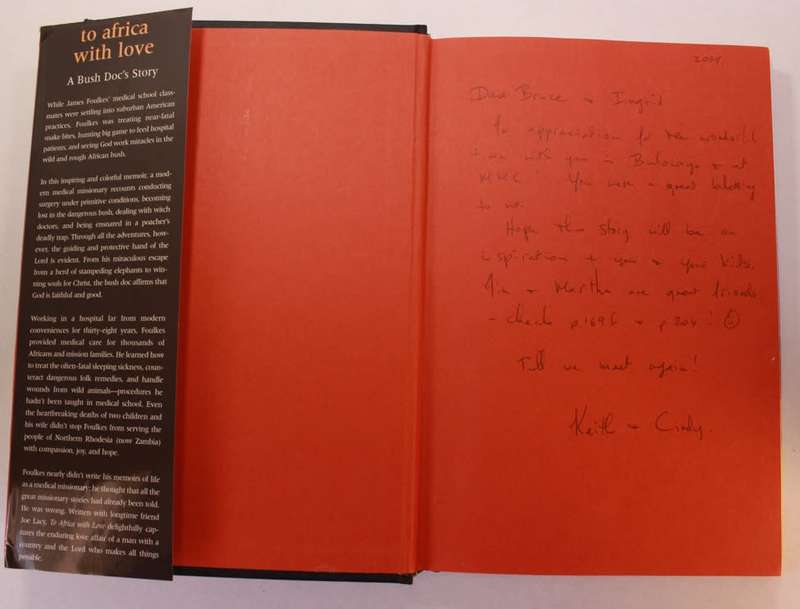 to africa
with love
A Bush Doc's Story
While James Foulkes' medical school class-
mates were settling into suburban American
practices, Foulkes was treating near-fatal
snake bites, hunting big game to feed hospital
patients, and seeing God work miracles in the
wild and rough African bush.
In this inspiring and colorful memoir, a mod-
ern medical missionary recounts conducting
surgery under primitive conditions, becoming
lost in the dangerous bush, dealing with witch
doctors, and being ensnared in a poacher's
deadly trap. Through all the adventures, how-
ever, the guiding and protective hand of the
Lord is evident. From his miraculous escape
from a herd of stampeding elephants to win-
ning souls for Christ, the bush doc affirms that
God is faithful and good.
Working in a hospital far from modern
conveniences for thirty-eight years, Foulkes
provided medical care for thousands of
Africans and mission families. He learned how
to treat the often-fatal sleeping sickness, coun-
teract dangerous folk remedies, and handle
wounds from wild animals—procedures he
hadn't been taught in medical school. Even
the heartbreaking deaths of two children and
his wife didn't stop Foulkes from serving the
people of Northern Rhodesia (now Zambia)
with compassion, joy, and hope.
Foulkes nearly didn't write his memoirs of life
as a medical missionary; he thought that all the
great missionary stories had already been told.
He was wrong. Written with longtime friend
Joe Lacy, To Africa with Love delightfully cap-
tures the enduring love affair of a man with a
country and the Lord who makes all things
possible.
Dear Bruce + Ingrid
In appreciation for the wonderful
time with you in Bulawayo + at
You were a great blessing
to us.
Hope this story will be an
inspiration to you + your kids.
Jim + Martha are great friends
- check p 169 + p 204!
Till we meet again!
Keith + Cindy.